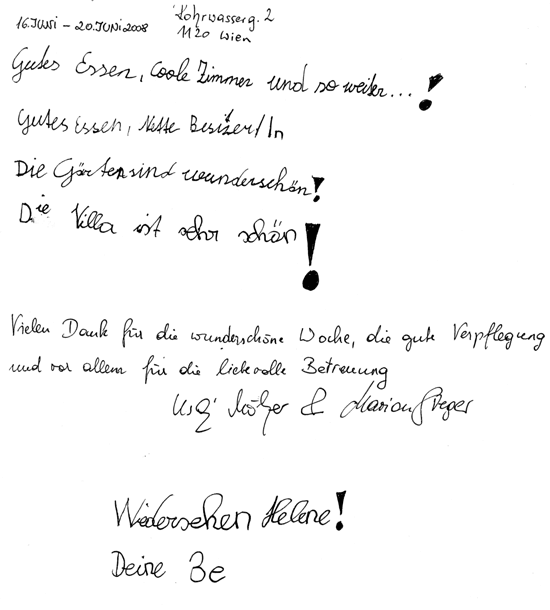 16. JUNI – 20. JUNI 2008
Rohrwasserg. 2
1120 Wien
Gutes Essen, coole Zimmer und so weiter...!
Gutes Essen, Nette Besitzer/In
Die Gärten sind wunderschön!
Die Villa ist sehr schön!
Vielen Dank für die wunderschöne Woche, die gute Verpflegung
und vor allem für die liebevolle Betreuung
& Marion
Wiedersehen Helene!
Deine Be